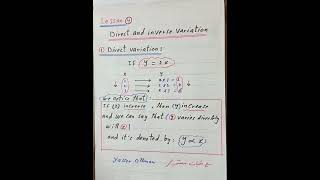 Lesson 4
Direct and inverse variation
① Direct variation:
If y = 2x
x y
We notice that:
If (x) increase, then (y) increase
and we can say that (y) varies directly
with x
and it's denoted by: y ∝ x
Yasser Othman